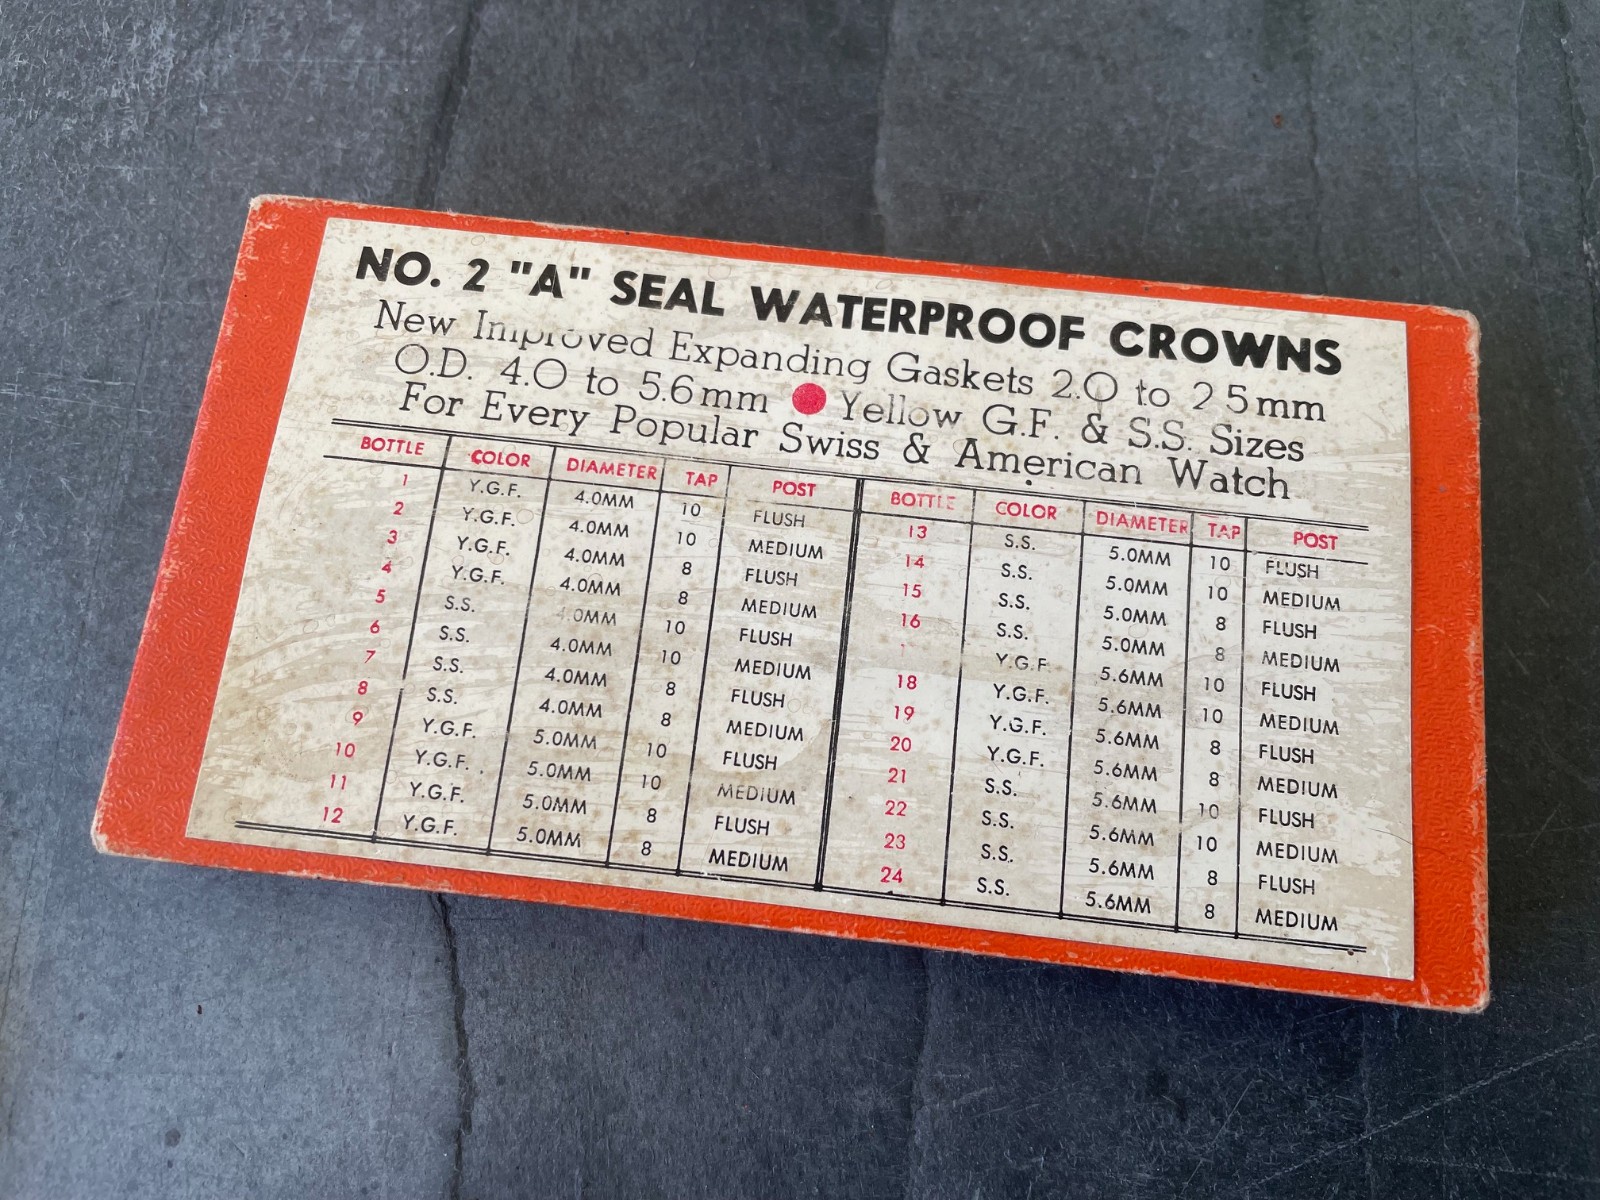 NO. 2 "A" SEAL WATERPROOF CROWNS
New Improved Expanding Gaskets 2.0 to 2 5mm
O.D. 4.0 to 5.6mm Yellow G.F. & S.S. Sizes
For Every Popular Swiss & American Watch
BOTTLE COLOR DIAMETER TAP POST BOTTLE COLOR DIAMETER TAP POST
1 Y.G.F. 4.0MM 10 FLUSH 13 S.S. 5.0MM 10 FLUSH
2 Y.G.F. 4.0MM 10 MEDIUM 14 S.S. 5.0MM 10 MEDIUM
3 Y.G.F. 4.0MM 8 FLUSH 15 S.S. 5.0MM 8 FLUSH
4 Y.G.F. 4.0MM 8 MEDIUM 16 S.S. 5.0MM 8 MEDIUM
5 S.S. 4.0MM 10 FLUSH Y.G.F 5.6MM 10 FLUSH
6 S.S. 4.0MM 10 MEDIUM 18 Y.G.F. 5.6MM 10 MEDIUM
7 S.S. 4.0MM 8 FLUSH 19 Y.G.F. 5.6MM 8 FLUSH
8 S.S. 4.0MM 8 MEDIUM 20 Y.G.F. 5.6MM 8 MEDIUM
9 Y.G.F. 5.0MM 10 FLUSH 21 S.S. 5.6MM 10 FLUSH
10 Y.G.F. 5.0MM 10 MEDIUM 22 S.S. 5.6MM 10 MEDIUM
11 Y.G.F. 5.0MM 8 FLUSH 23 S.S. 5.6MM 8 FLUSH
12 Y.G.F. 5.0MM 8 MEDIUM 24 S.S. 5.6MM 8 MEDIUM